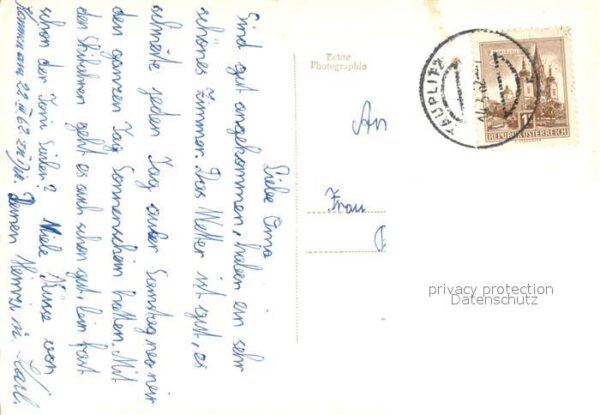 Liebe Oma
Sind gut angekommen, haben ein sehr
schönes Zimmer. Das Wetter ist gut, es
schneite jeden Tag außer Samstag wo wir
den ganzen Tag Sonnenschein hatten. Mit
den Skifahren geht es auch schon gut, bin fast
schon der Toni Sailer? Viele Küsse von
Deinen
Echte
Photographie
An
Frau
TAUPLITZ
REPUBLIK ÖSTERREICH
privacy protection
Datenschutz